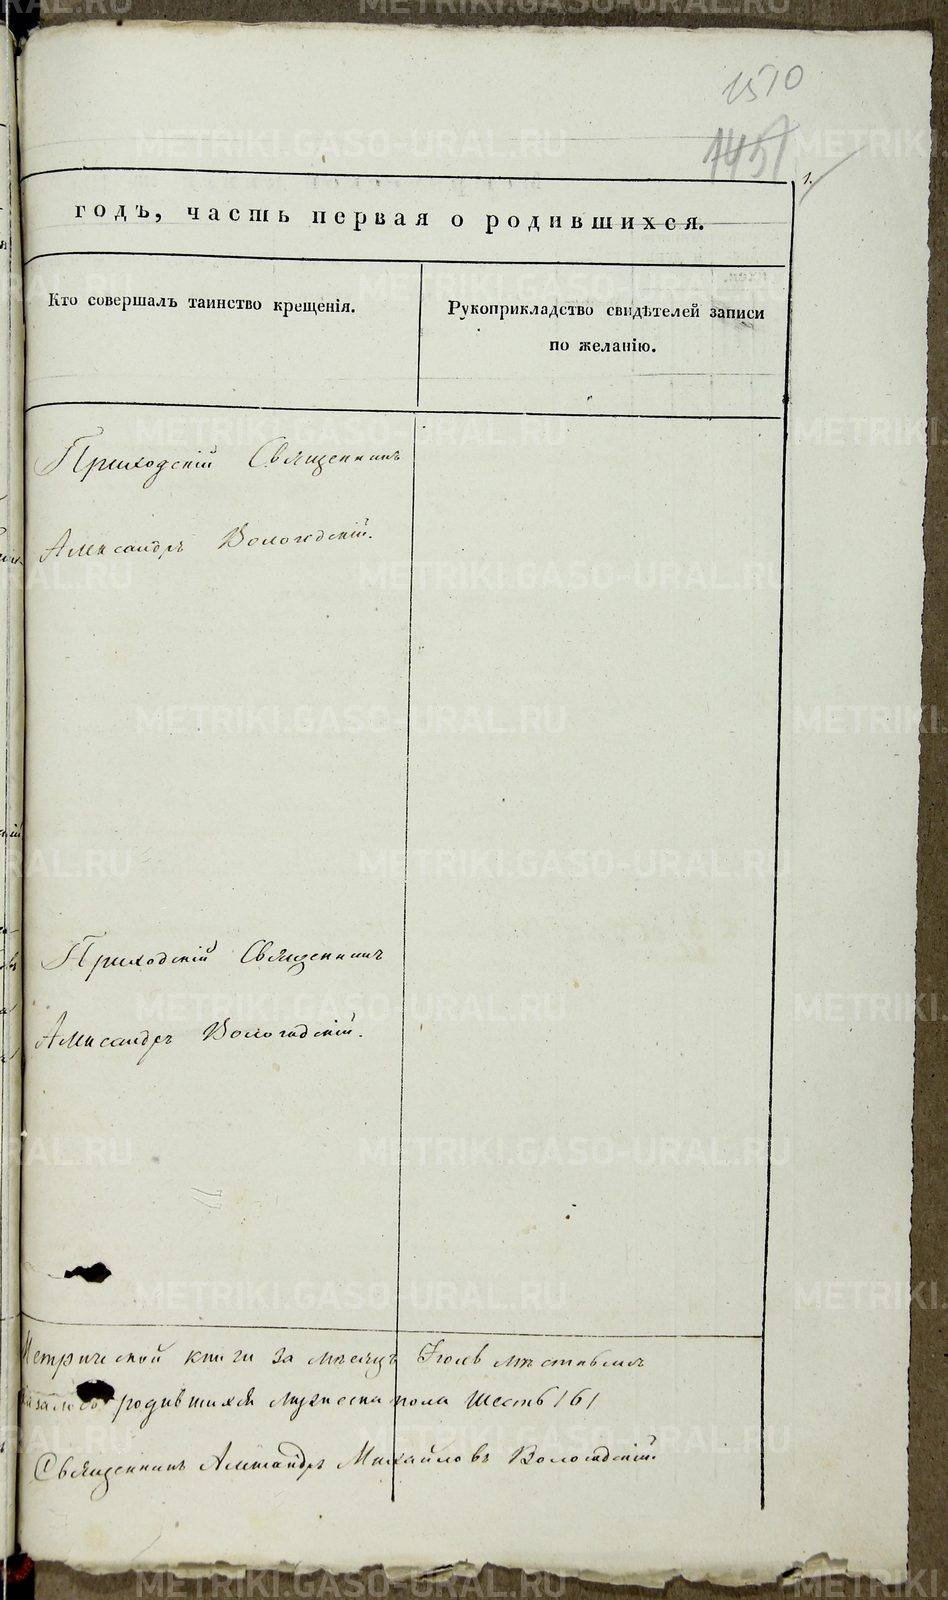 1510
1451
1.
годъ, часть первая о родившихся.
Кто совершалъ таинство крещенія.
Рукоприкладство свидѣтелей записи
по желанію.
Приходскій Священникъ
Александръ Вологодскій.
Приходскій Священникъ
Александръ Вологодскій.
Метрической книги за мѣсяцъ Іюль
родившихся мужеска пола шесть /6/
Священникъ Александръ Михайловъ Вологодскій
METRIKI.GASO-URAL.RU